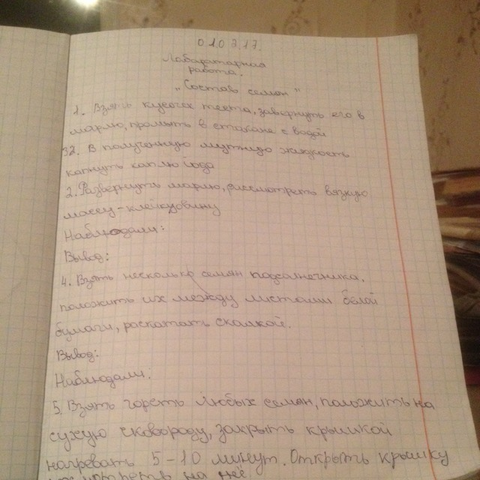 01.03.17.
Лабораторная
работа.
„Состав семян"
1. Взять кусочек теста, завернуть его в
марлю, промыть в стакане с водой
32. В полученную мутную жидкость
капнуть каплю йода
2. Развернуть марлю, рассмотреть вязкую
массу-клейковину
Наблюдали:
Вывод:
4. Взять несколько семян подсолнечника,
положить их между листами белой
бумаги, раскатать скалкой.
Вывод:
Наблюдали.
5. Взять горсть любых семян, положить на
сухую сковороду, закрыть крышкой
нагревать 5-10 минут. Открыть крышку
и смотреть на неё